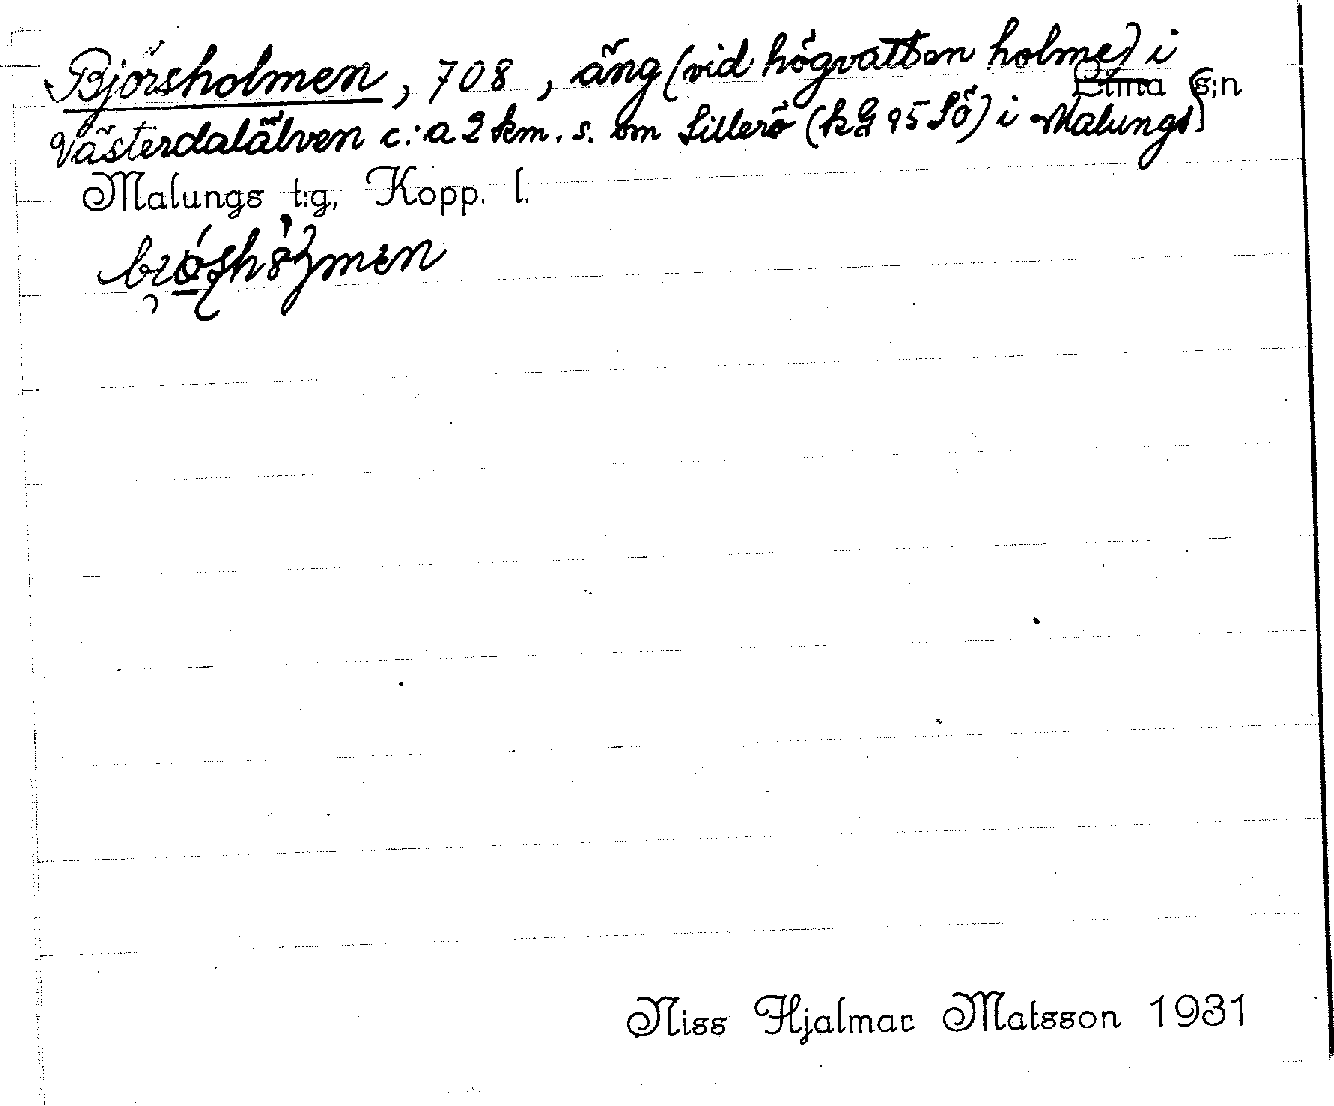 Björsholmen, 708, äng (vid högvatten holme) i
Västerdalälven c:a 2 km. s. om Lillerö (kG 95 SÖ) i Malungs s:n
Malungs t:g, Kopp. l.
Niss Hjalmar Matsson 1931